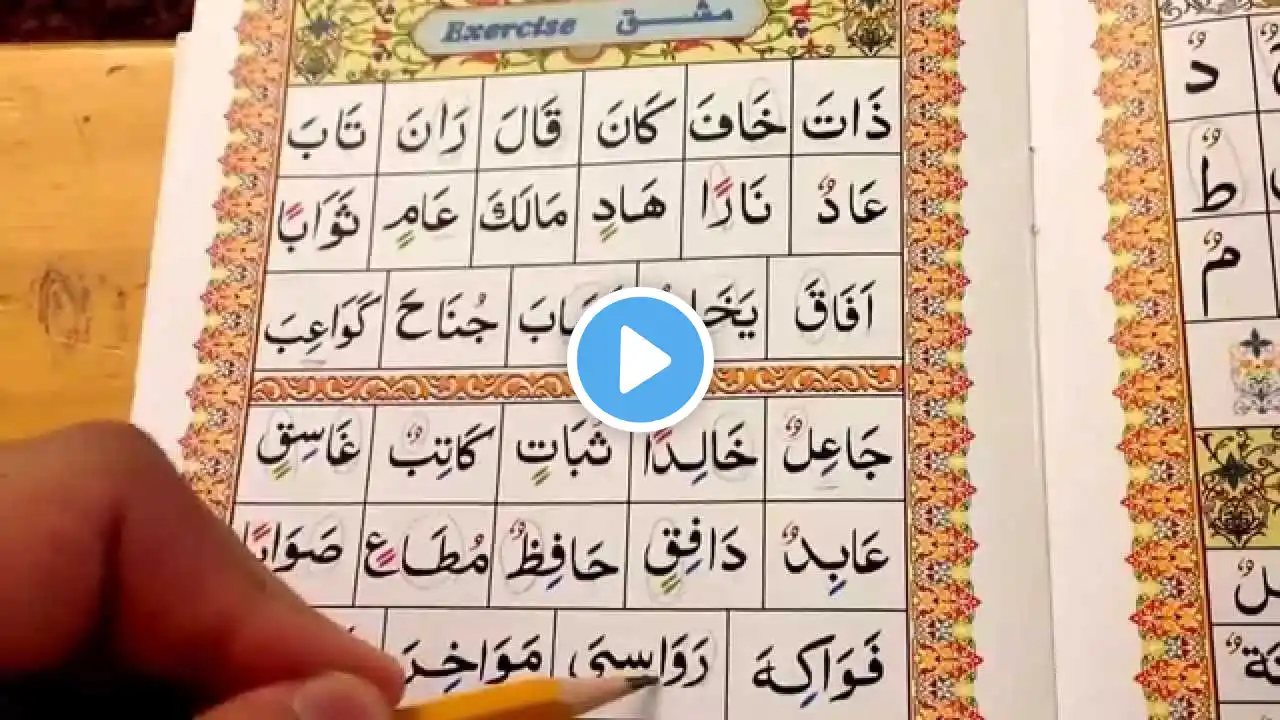 Exercise مشق
ذَاتَ خَافَ كَانَ قَالَ رَانَ تَابَ
عَادٌ نَارًا هَادٍ مَالَكَ عَامٍ ثَوَابًا
اَفَاقَ جُنَاحَ كَوَاعِبَ
جَاعِلٌ خَالِدًا ثُبَاتٍ كَاتِبٌ غَاسِقٍ
عَابِدٌ دَافِقٍ حَافِظٌ مُطَاعٍ صَوَابًا
فَوَاكِهَ رَوَاسِىَ مَوَاخِرَ
دٌ
طٌ
مٌ